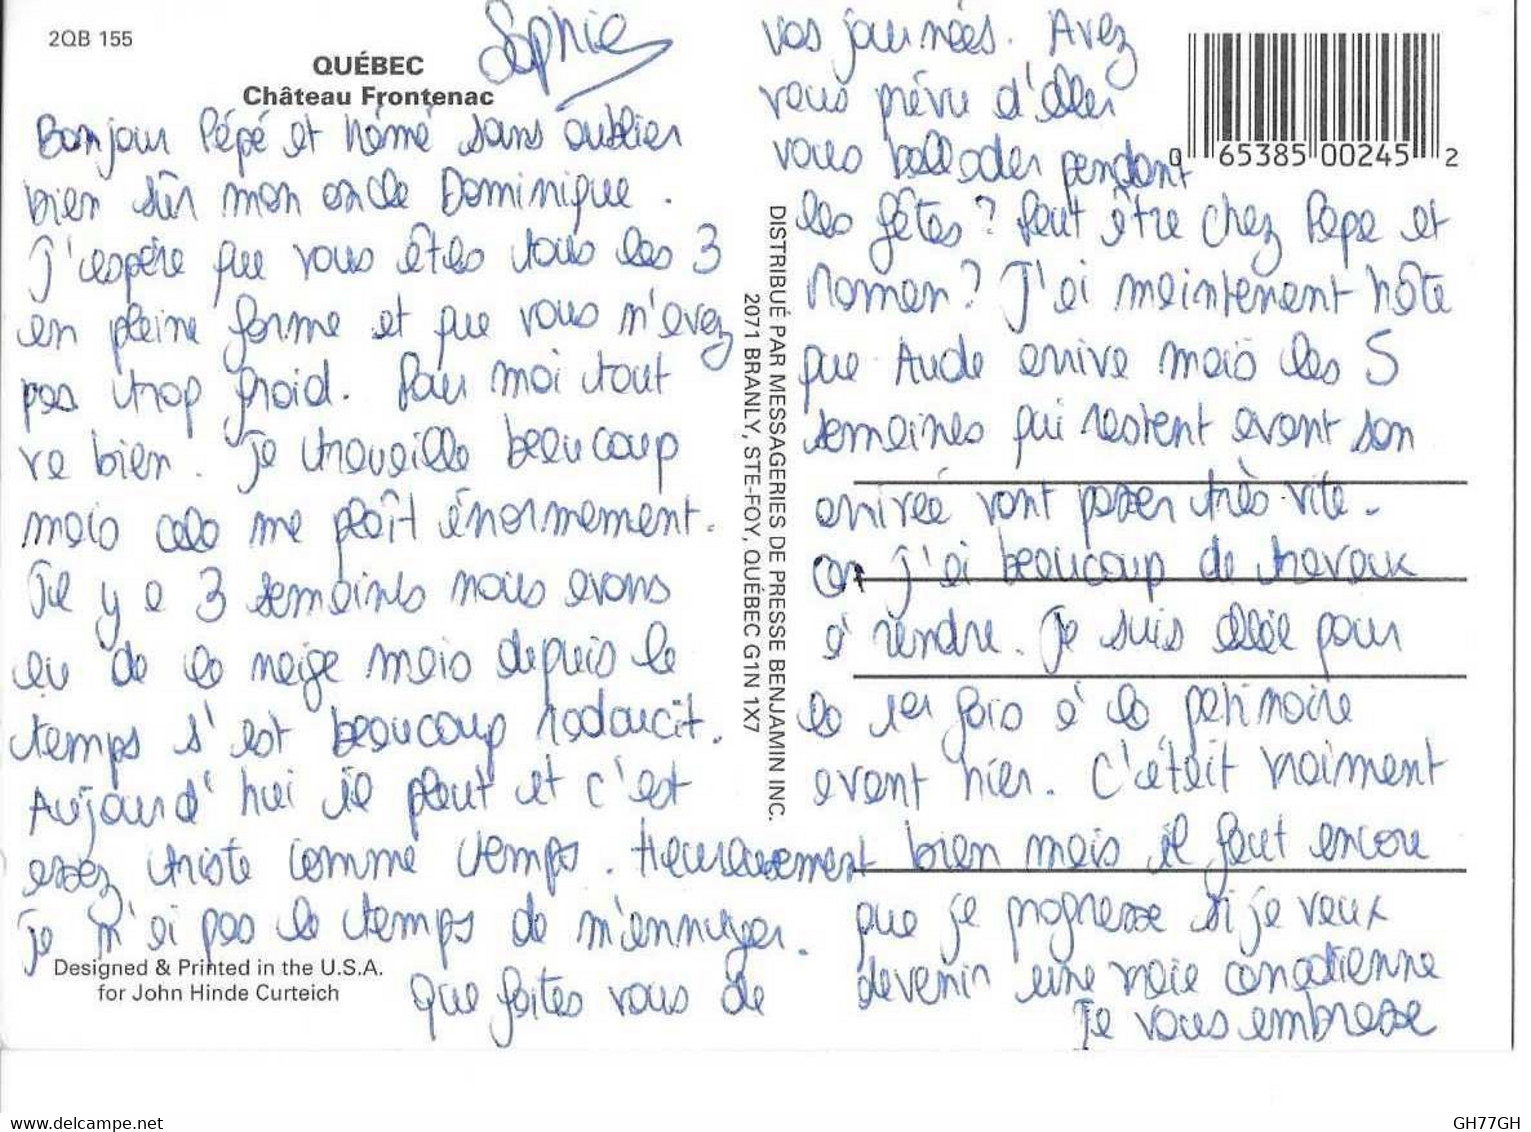 2QB 155
QUÉBEC
Château Frontenac
Bonjour Pépé et Mémé sans oublier
bien sûr mon oncle Dominique.
J'espère que vous êtes tous les 3
en pleine forme et que vous n'avez
pas trop froid. Pour moi tout
va bien. Je travaille beaucoup
mais cela me plaît énormement.
Il y a 3 semaines nous avons
eu de la neige mais depuis le
temps s'est beaucoup radoucit.
Aujourd'hui il pleut et c'est
assez triste comme temps. Heureusement
je n'ai pas le temps de m'ennuyer.
Que faites vous de
Designed & Printed in the U.S.A.
for John Hinde Curteich
DISTRIBUÉ PAR MESSAGERIES DE PRESSE BENJAMIN INC.
2071 BRANLY, STE-FOY, QUÉBEC G1N 1X7
vos journées. Avez
vous prévu d'aller
vous ballader pendant
les fêtes? Peut être chez Pepe et
Maman? J'ai maintenant hâte
que Aude arrive mais les 5
semaines qui restent avant son
arrivée vont passer très vite.
car j'ai beaucoup de travaux
à rendre. Je suis allée pour
la 1er fois à la patinoire
avant hier. C'était vraiment
bien mais il faut encore
que je progresse si je veux
devenir une vraie canadienne
Je vous embrasse
Sophie
0 65385 00245 2
GH77GH